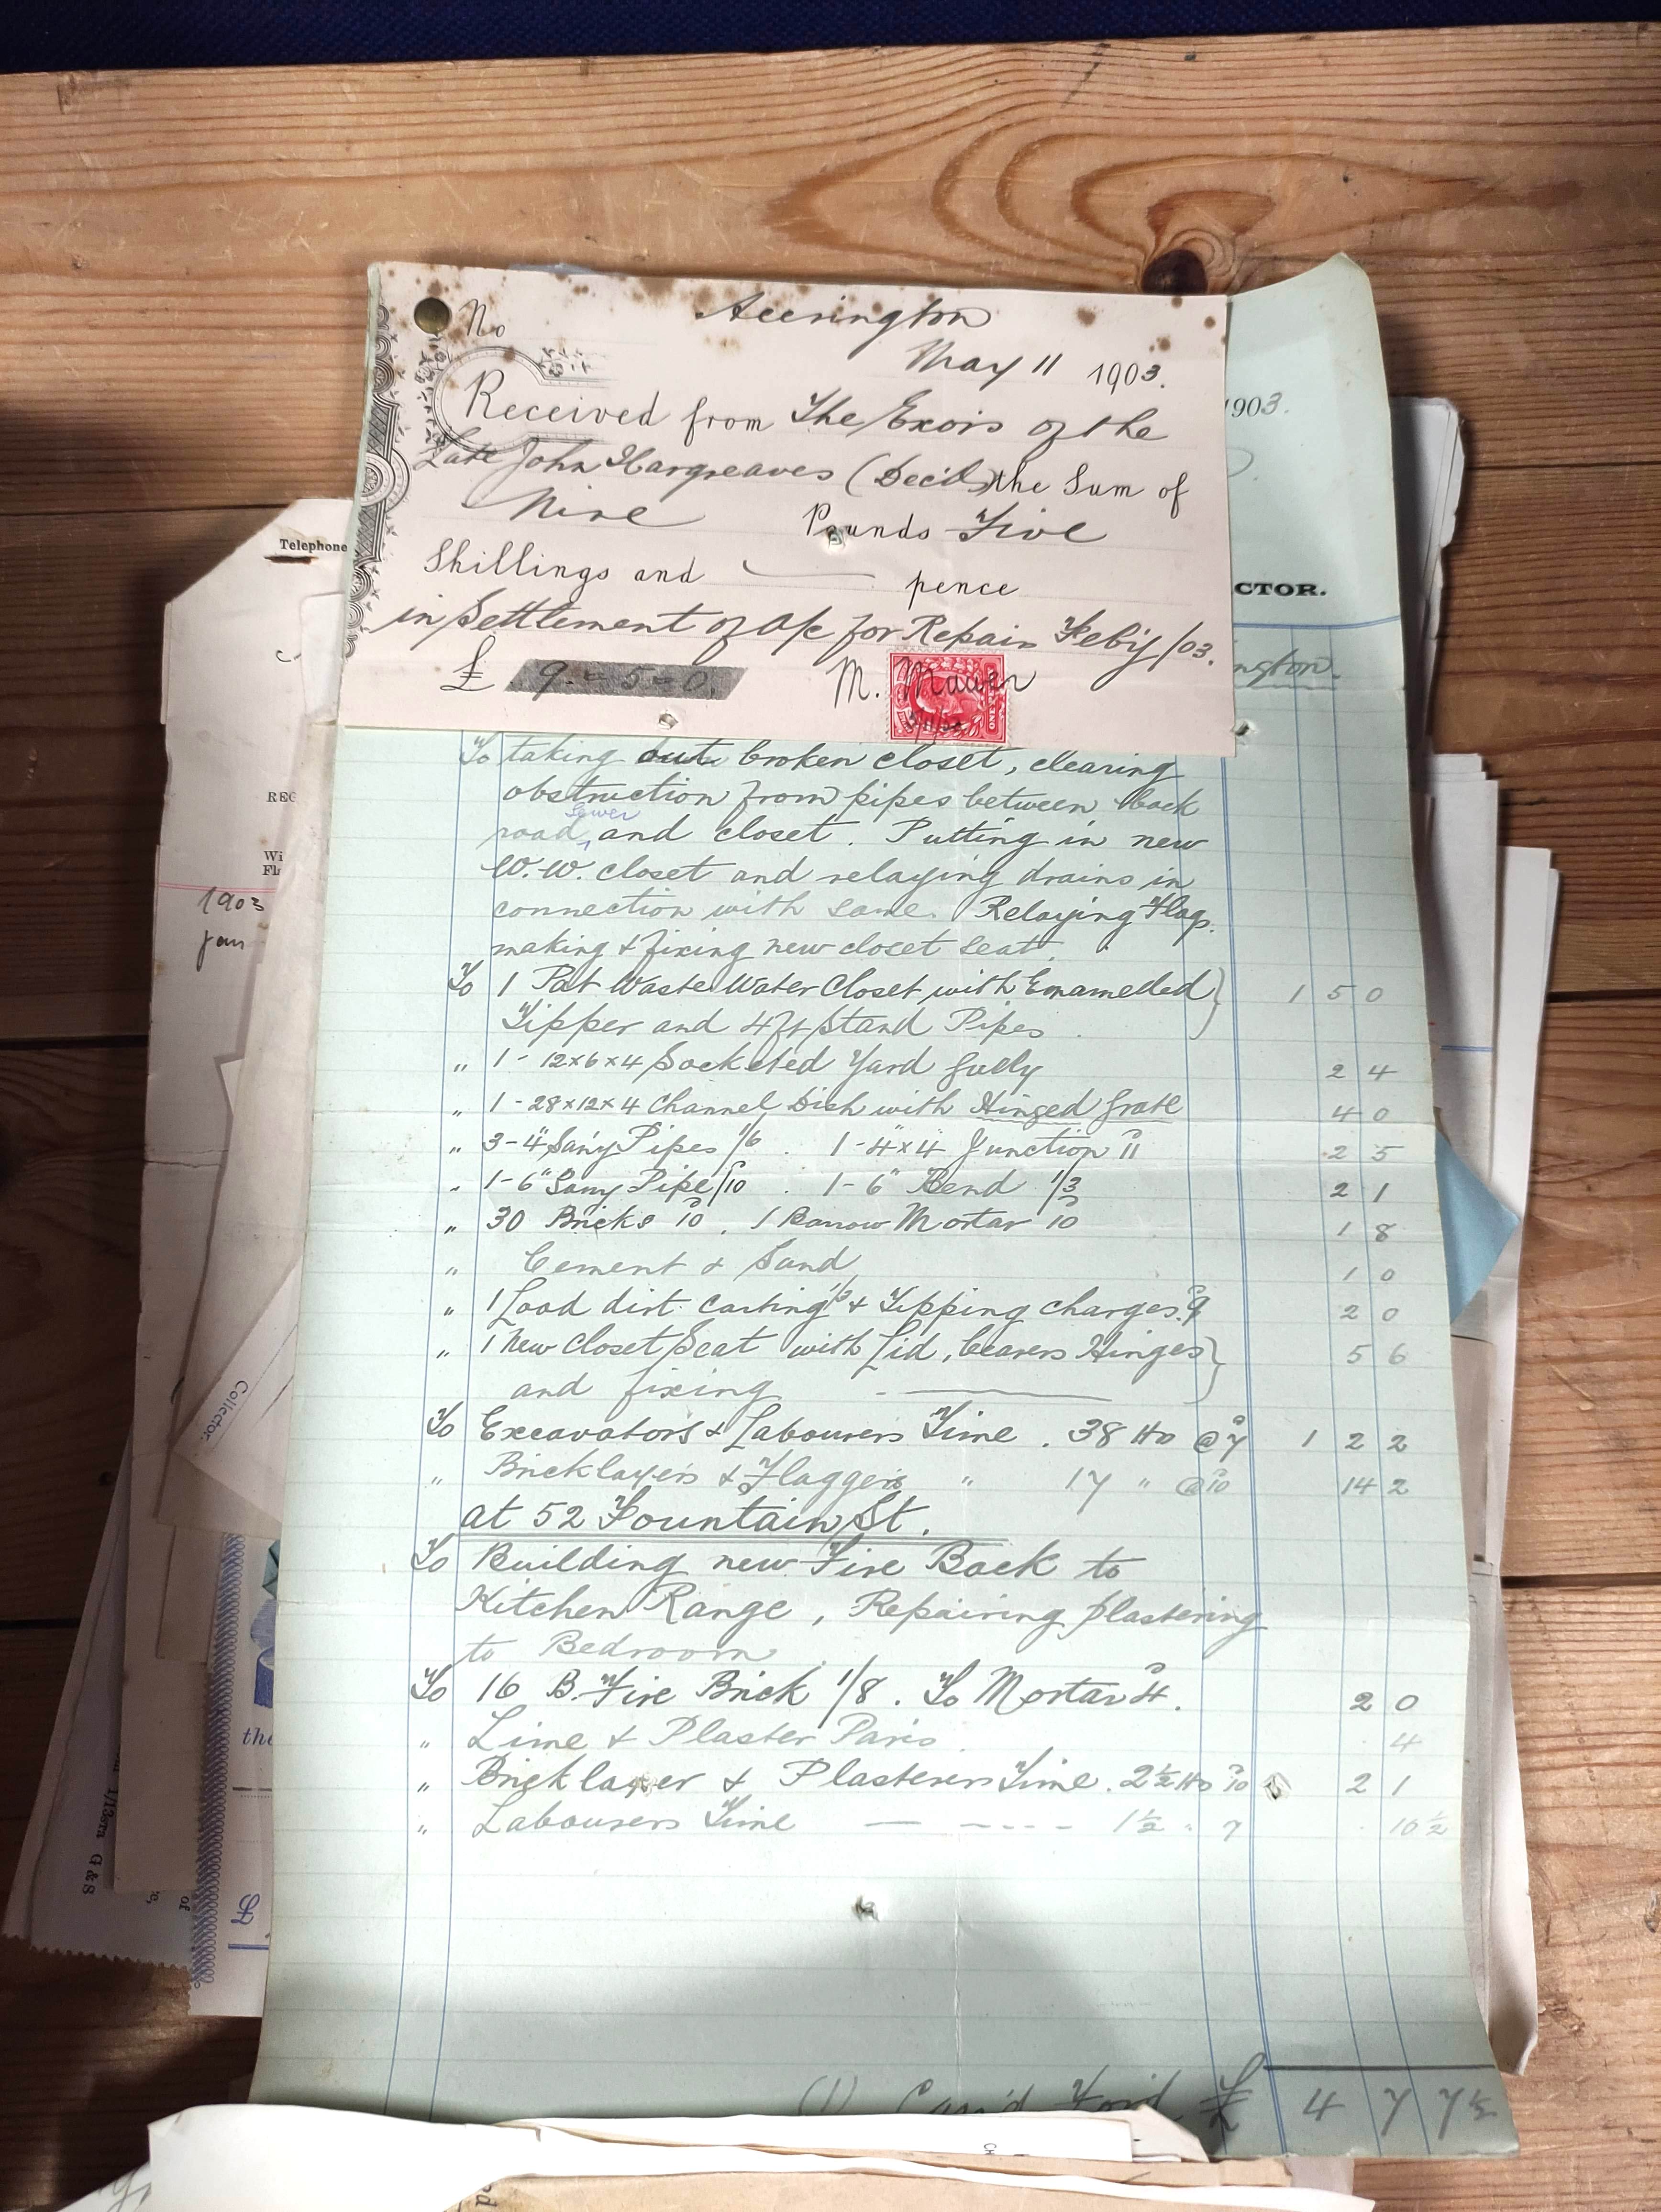 No
Accrington
May 11 1903.
Received from The Exors of the
Late John Hargreaves (Dec'd) the Sum of
Nine Pounds Five
Shillings and — pence
in Settlement of A/c for Repairs Feby/03.
£ 9 = 5 = 0. M. Mawer
ONE
1903.
CTOR.
ngton.
To taking out broken closet, clearing
obstruction from pipes between back
sewer
road, and closet. Putting in new
W.W. closet and relaying drains in
connection with same. Relaying Flags.
making & fixing new closet seat.
To 1 Pat Waste Water Closet with Enamelled } 1 5 0
Tipper and 4 ft Stand Pipes
" 1 - 12×6×4 Socketed Yard Gully 2 4
" 1 - 28×12×4 Channel Dish with Hinged Grate 4 0
" 3 - 4" Sany Pipes 1/6 . 1 - 4×4 Junction 11 2 5
" 1 - 6" Sany Pipe /10 . 1 - 6" Bend 1/3 2 1
" 30 Bricks 10 . 1 Barrow Mortar 10 1 8
" Cement & Sand 1 0
" 1 Load dirt carting 1/3 & Tipping charges 9 2 0
" 1 New Closet Seat with Lid, bearers Hinges } 5 6
and fixing
To Excavators & Labourers Time . 38 Hrs @ 7 1 2 2
" Bricklayers & Flaggers " 17 " @ 10 14 2
at 52 Fountain St.
To Building new Fire Back to
Kitchen Range, Repairing plastering
to Bedroom
To 16 B. Fire Brick 1/8 . To Mortar 4. 2 0
" Lime & Plaster Paris 4
" Bricklayer & Plasterers Time . 2½ Hrs 10 2 1
" Labourers Time 1½ " 7 10½
(1) Car'd Ford £ 4 7 7½
Telephone
REG
Wi
Fl
1903
Jan
Collector.
the
£
of